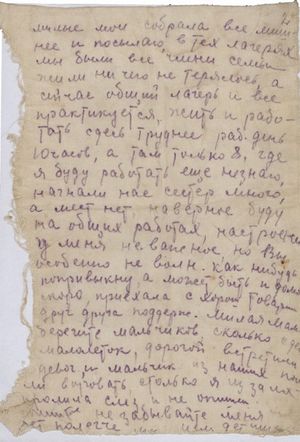 2
милые мои собрала все лиш
нее и посылаю, в тех лагерях
мы были все члени семьи
жили ни чего не терялось а
сичас общий лагерь и все
практикуется, жить и рабо-
тать сдесь труднее раб. день
10 часов, а там только 8, где
я буду работать еще незнаю,
нагнали нас сестер много,
а мест нет наверное буду
на общих работах настроение
у меня не важное, но Вы
особенно не волн. как нибудь
попривыкну а может быть и домой
скоро, приехала с хорош товарищ
друг друга поддерж. милая мама
берегите мальчиков сколько
малолеток, дорогой встретили
девоч и мальчик из наших
воровать, столько я из за
пролила слез и не
не забывайте меня
нет полегче